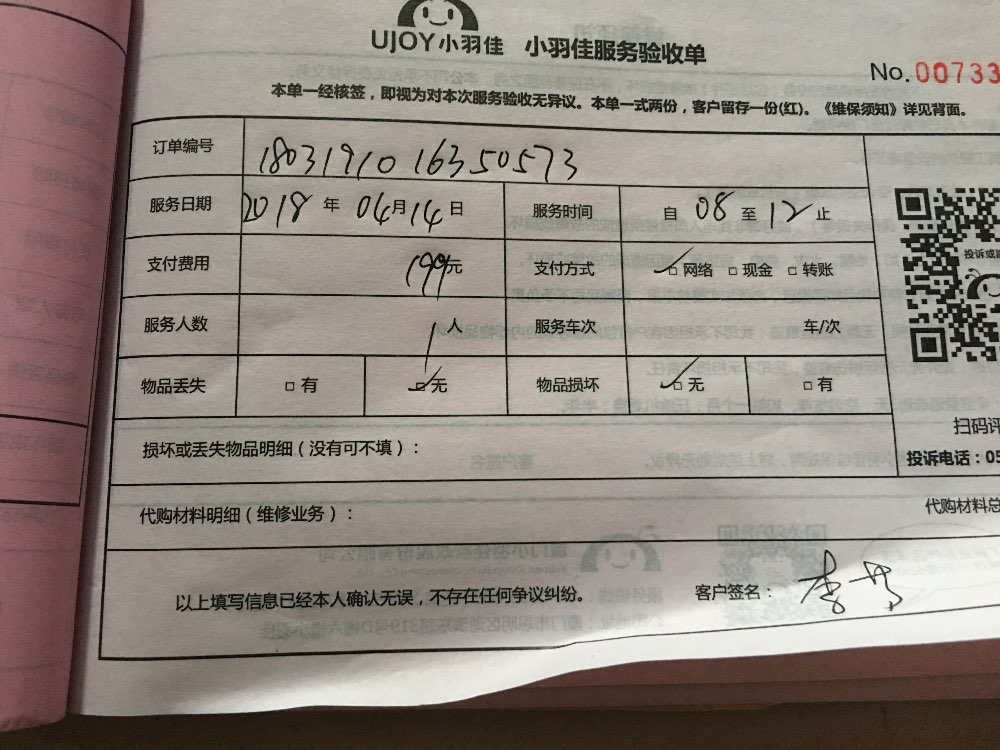 UJOY小羽佳 小羽佳服务验收单
No.00733
本单一经核签，即视为对本次服务验收无异议。本单一式两份，客户留存一份(红)。《维保须知》详见背面。
订单编号 1803191016350573
服务日期 2018 年 04 月 14 日 服务时间 自 08 至 12 止
支付费用 199元 支付方式 ☑网络 □现金 □转账
服务人数 1人 服务车次 车/次
物品丢失 □有 ☑无 物品损坏 ☑无 □有
损坏或丢失物品明细（没有可不填）：
扫码评
投诉电话：05
代购材料明细（维修业务）：
代购材料总
以上填写信息已经本人确认无误，不存在任何争议纠纷。 客户签名：